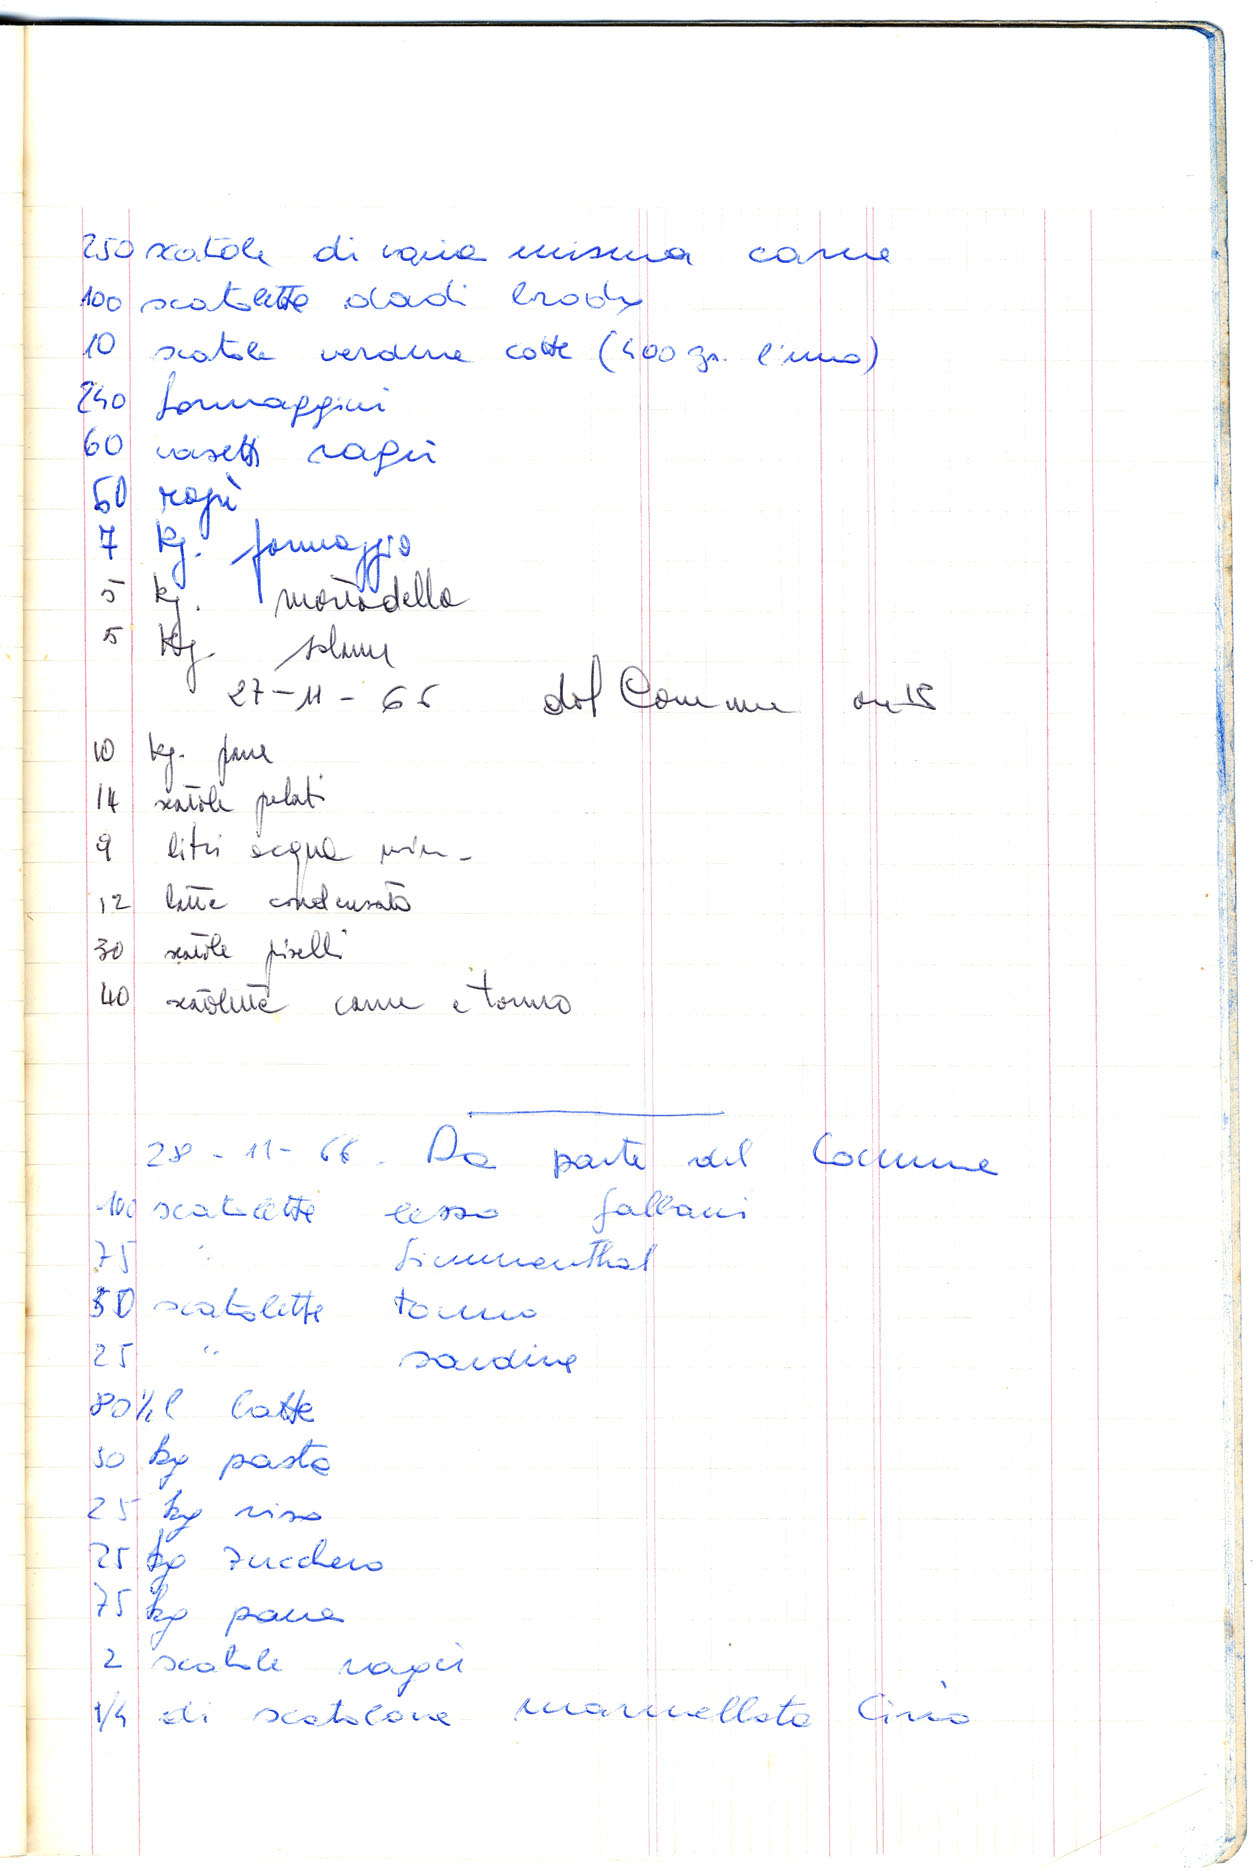 250 scatole di varia misura carne
100 scatolette dadi brodo
10 scatole verdure cotte (400 gr. l'una)
240 formaggini
60 vasetti ragù
50 ragù
7 Kg. formaggio
5 Kg. mortadella
5 Kg. salame
27-11-66 dal Comune ore 15
10 Kg. pane
14 scatole pelati
9 litri acqua min.
12 latte condensato
30 scatole piselli
40 scatolette carne e tonno
28-11-66. Da parte del Comune
100 scatolette lesso Galbani
75 " Simmenthal
50 scatolette tonno
25 " sardine
80 ½ l latte
50 kg pasta
25 kg riso
25 kg zucchero
75 kg pane
2 scatole ragù
1/4 di scatolone marmellata Cirio